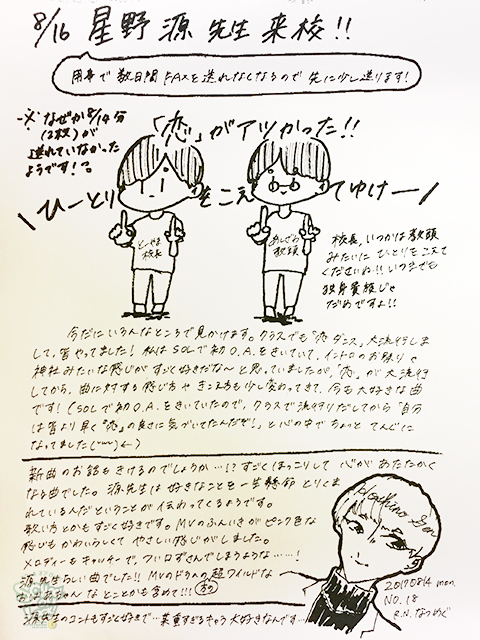 8/16 星野 源 先生 来校!!
用事で数日間FAXを送れなくなるので先に少し送ります!
※なぜか8/14分
(2枚)が
送れていなかった
ようです!
「恋」がアツかった!!
\ひーとり をこえ てゆけー/
とーやま
校長
あしざわ
教頭
校長、いつかは教頭
みたいにひとりをこえて
くださいね!!いつまでも
独身貴族じゃ
だめですよ!!
今だにいろんなところで見かけます。クラスでも「恋ダンス」大流行しま
して、皆やってました!私はSOLで初O.A.をきいていて、イントロのお祭りや
神社みたいな感じがすごく好きだな〜と思っていましたが、「恋」が大流行
してから、曲に対する感じ方やきこえ方も少し変わってきて、今も大好きな曲
です!(SOLで初O.A.をきいていたので、クラスで流行りだしてから「自分
は皆より早く"恋"の良さに気づいてたんだぞ!」と心の中でちょっとてんぐに
なってました
新曲のお話もきけるのでしょうか…!?すごくほっこりして心があたたかく
なる曲でした。源先生は好きなことを一生懸命とりくま
れているんだということが伝わってくるようです。
歌い方とかもすごく好きです。MVのふんいきがピンク色な
感じもかわいらしくてやさしい感じがしました。
メロディーもキャッチーで、つい口ずさんでしまうような……!
源先生らしい曲でした!!MVのドラムの超ワイルドな
おばあちゃんなとことかも含めて!!!
源先生のコントもすごく好きで…英重すぎるキャラ大好きなんです…
Hoshino Gen
2017 08 14 mon.
NO. 18
R.N. なつめぐ